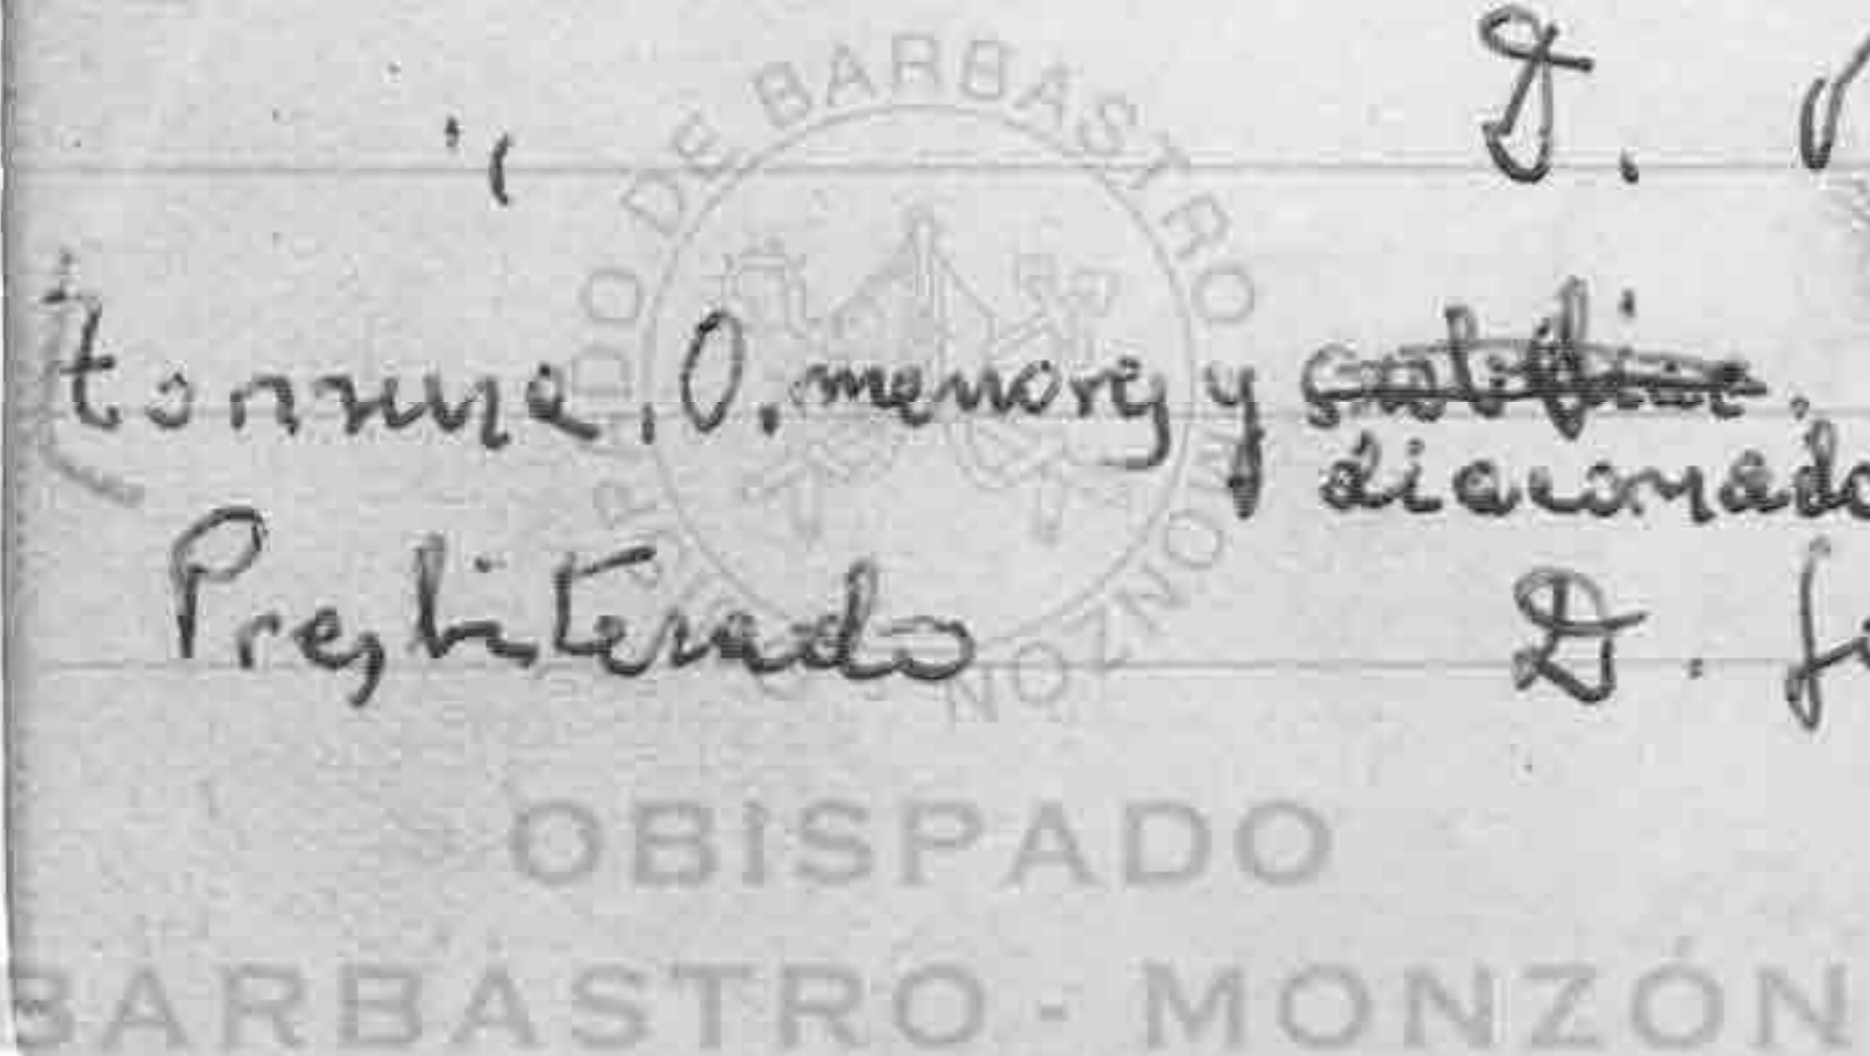 " D.
tonsura. O. menores y
diaconado
Presbiterado D.
OBISPADO DE BARBASTRO
MONZÓN
OBISPADO
BARBASTRO - MONZÓN